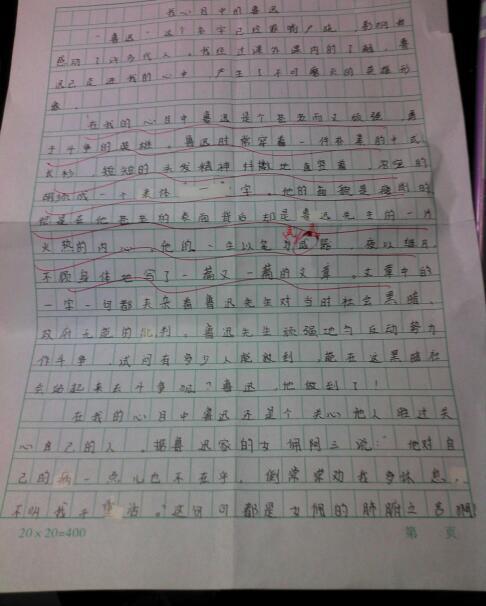 我心目中的鲁迅
“鲁迅”这个名字已经家喻户晓，影响与
感动了许多代人。我经过课外课内的了解，鲁
迅已走进我的心中，产生了不可磨灭的英雄形
象。
在我的心目中鲁迅是个甚至而又顽强，勇
于斗争的英雄。鲁迅时常穿着一件朴素的中式
长衫，短短的头发精神抖擞地直竖着，浓密的
胡须成一个隶体“一”字。他的面貌是瘦削的
但是在他的表面背后却是鲁迅先生的一片
火热的内心。他的一生以笔为武器，夜以继日，
不顾身体地写了一篇又一篇的文章。文章中的
一字一句都夹杂着鲁迅先生对当时社会黑暗、
政府无能的批判。鲁迅先生顽强地与反动势力
作斗争，试问有多少人能做到，能在这黑暗社
会站起来去斗争呢？鲁迅，他做到了！
在我的心目中鲁迅还是个关心他人胜过关
心自己的人。据鲁迅家的女佣阿三说：“他对自
己的病一点儿也不在乎，倒常常劝我多休息，
不叫我干重活。”这句可都是女佣的肺腑之言啊！
20×20=400
第 页